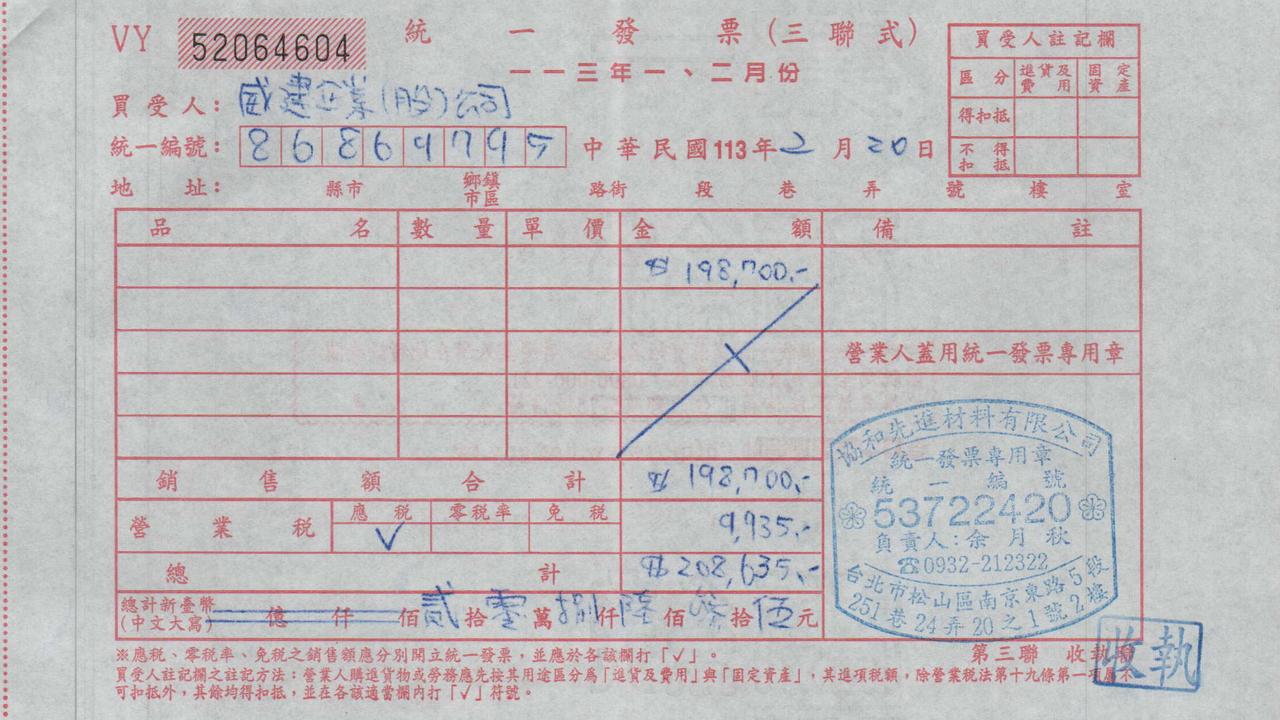 VY 52064604 統一發票(三聯式)
一一三年一、二月份
買受人註記欄
區分 進貨及費用 固定資產
得扣抵
不得扣抵
買受人: 威建企業(股)公司
統一編號: 86869795 中華民國113年2月20日
地址: 縣市 鄉鎮市區 路街 段 巷 弄 號 樓 室
品名 數量 單價 金額 備註
$198,700.-
營業人蓋用統一發票專用章
銷售額合計 $198,700.-
營業稅 應稅 零稅率 免稅
✓ 9,935.-
總計 $208,635.-
總計新臺幣(中文大寫) 億 仟 佰貳拾零萬捌仟陸佰參拾伍元
協和先進材料有限公司
統一發票專用章
統一編號
53722420
負責人:余月秋
☎0932-212322
台北市松山區南京東路5段
251巷24弄20之1號2樓
第三聯 收執聯
收執
※應稅、零稅率、免稅之銷售額應分別開立統一發票,並應於各該欄打「✓」。
買受人註記欄之註記方法:營業人購進貨物或勞務應先按其用途區分為「進貨及費用」與「固定資產」,其進項稅額,除營業稅法第十九條第一項屬不
可扣抵外,其餘均得扣抵,並在各該適當欄內打「✓」符號。